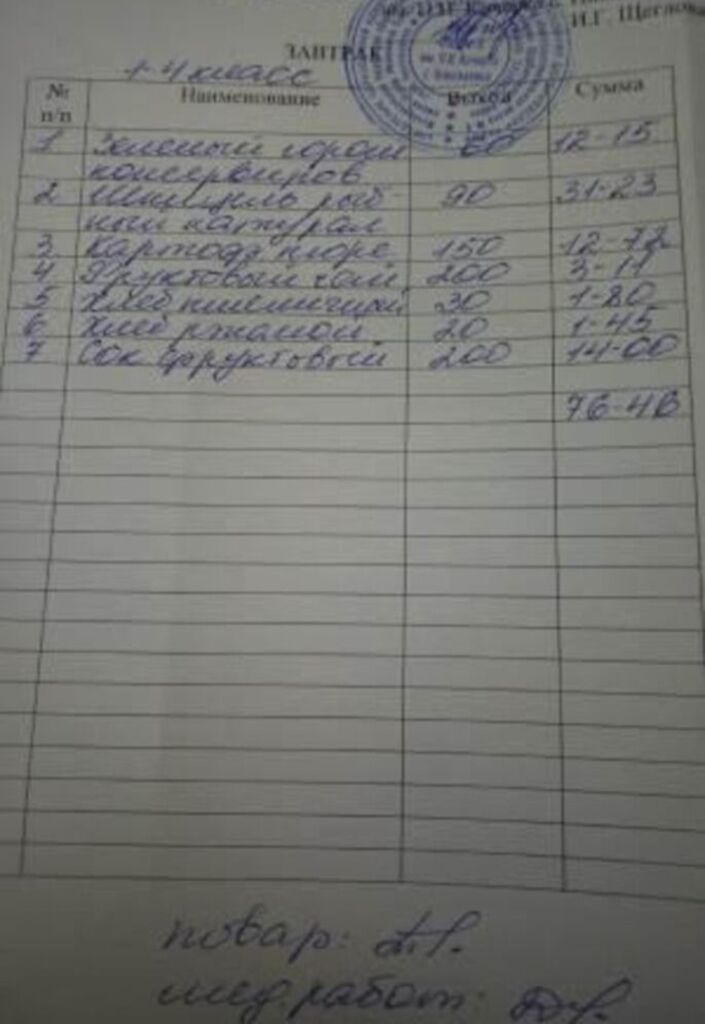 И.Г. Щеглова
ЗАВТРАК
1-4 класс
№ п/п Наименование Выход Сумма
1 Зеленый горош 60 12-15
консервиров
2 Шницель рыб- 90 31-23
ный натурал
3 Картофф пюре 150 12-72
4 Фруктовый чай 200 3-11
5 Хлеб пшеничный 30 1-80
6 Хлеб ржаной 20 1-45
7 Сок фруктовый 200 14-00
76-46
повар:
мед. работ: